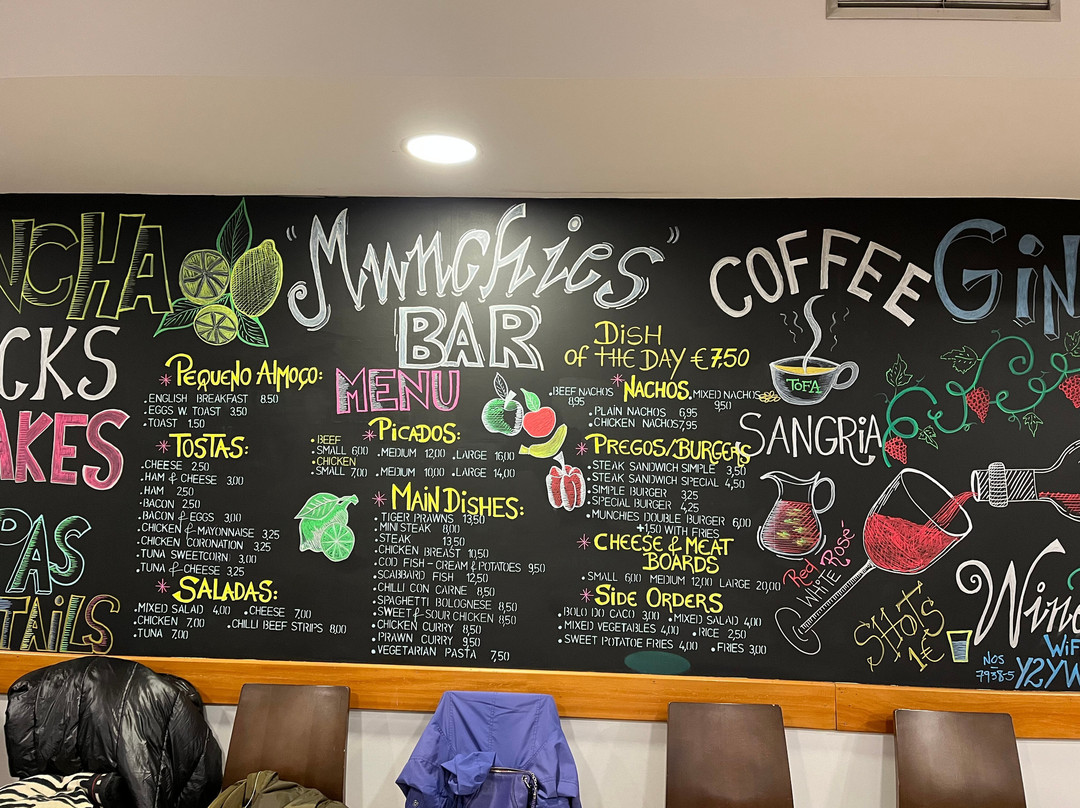 NCHA
CKS
AKES
PAS
TAILS
"Munchies"
BAR
MENU
* Pequeno Almoço:
. ENGLISH BREAKFAST 8.50
. EGGS W. TOAST 3.50
. TOAST 1.50
* TOSTAS:
. CHEESE 2.50
. HAM & CHEESE 3,00
. HAM 2.50
. BACON 2.50
. BACON & EGGS 3,00
. CHICKEN & MAYONNAISE 3,25
. CHICKEN CORONATION 3,25
. TUNA SWEETCORN 3,00
. TUNA & CHEESE 3,25
* SALADAS:
. MIXED SALAD 4,00 . CHEESE 7,00
. CHICKEN 7,00 . CHILLI BEEF STRIPS 8,00
. TUNA 7,00
* PICADOS:
. BEEF
SMALL 6,00 . MEDIUM 12,00 . LARGE 16,00
. CHICKEN
SMALL 7,00 . MEDIUM 10,00 . LARGE 14,00
* MAIN DISHES:
. TIGER PRAWNS 13,50
. MINI STEAK 8,00
. STEAK 13,50
. CHICKEN BREAST 10,50
. COD FISH - CREAM & POTATOES 9,50
. SCABBARD FISH 12,50
. CHILLI CON CARNE 8,50
. SPAGHETTI BOLOGNESE 8,50
. SWEET & SOUR CHICKEN 8,50
. CHICKEN CURRY 8,50
. PRAWN CURRY 9,50
. VEGETARIAN PASTA 7,50
DISH
OF THE DAY €7,50
* NACHOS
. BEEF NACHOS 8,95
. MIXED NACHOS 9,50
. PLAIN NACHOS 6,95
. CHICKEN NACHOS 7,95
* PREGOS/BURGERS
. STEAK SANDWICH SIMPLE 3,50
. STEAK SANDWICH SPECIAL 4,50
. SIMPLE BURGER 3,25
. SPECIAL BURGER 4,25
. MUNCHIES DOUBLE BURGER 6,00
+1,50 WITH FRIES
* CHEESE & MEAT
BOARDS
. SMALL 6,00 MEDIUM 12,00 LARGE 20,00
* SIDE ORDERS
. BOLO DO CACO 3,00 . MIXED SALAD 4,00
. MIXED VEGETABLES 4,00 . RICE 2,50
. SWEET POTATOE FRIES 4,00 . FRIES 3,00
COFFEE
TOFA
SANGRIA
Red
WHITE
Rosé
GIN
SHOTS
1€
Wine
WiFi
NOS
7938-5
Y2YW